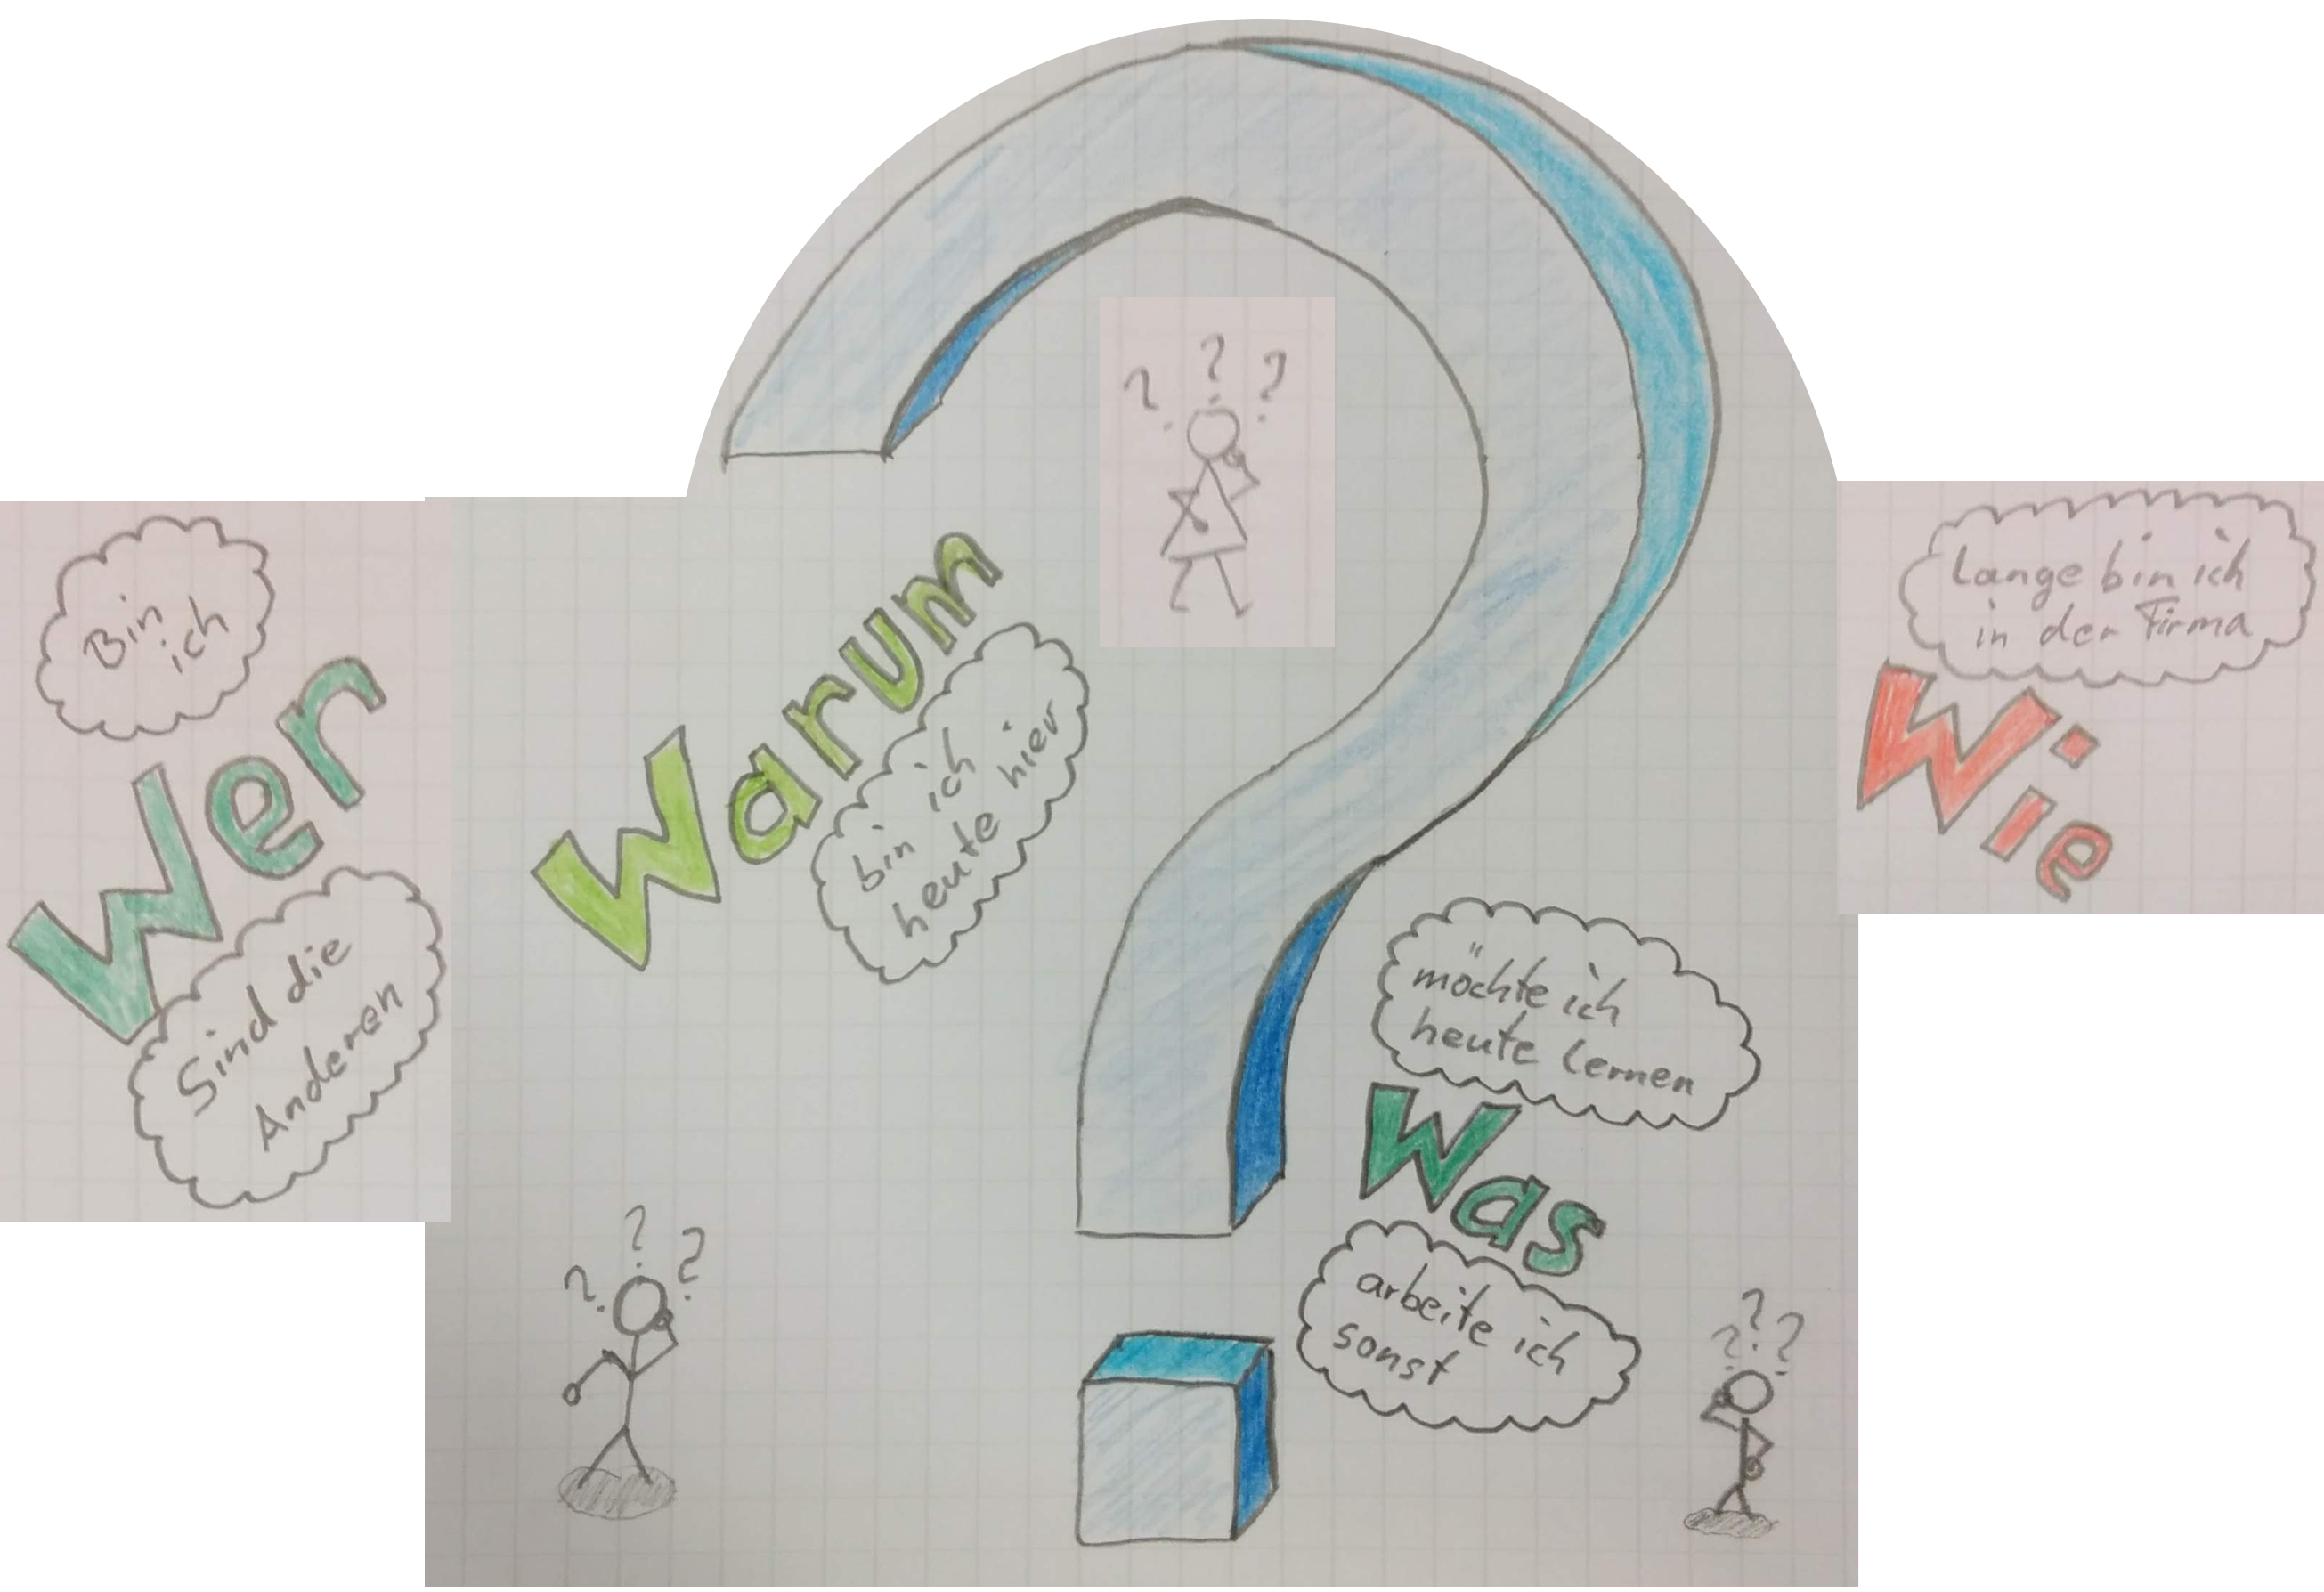 Bin
ich
Wer
Sind die
Anderen
Warum
bin ich
heute hier
? ? ?
Lange bin ich
in der Firma
Wie
möchte ich
heute Lernen
Was
arbeite ich
sonst
? ? ?
? ? ?
?